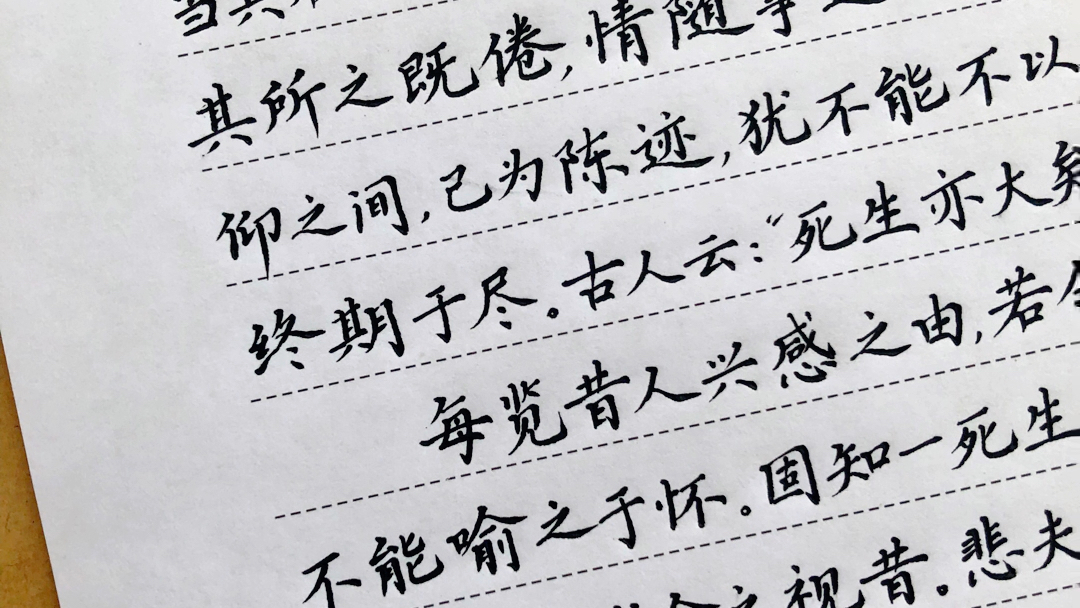 其所之既倦,情随事
仰之间,己为陈迹,犹不能不以
终期于尽。古人云:“死生亦大矣
每览昔人兴感之由,若
不能喻之于怀。固知一死生
之视昔。悲夫